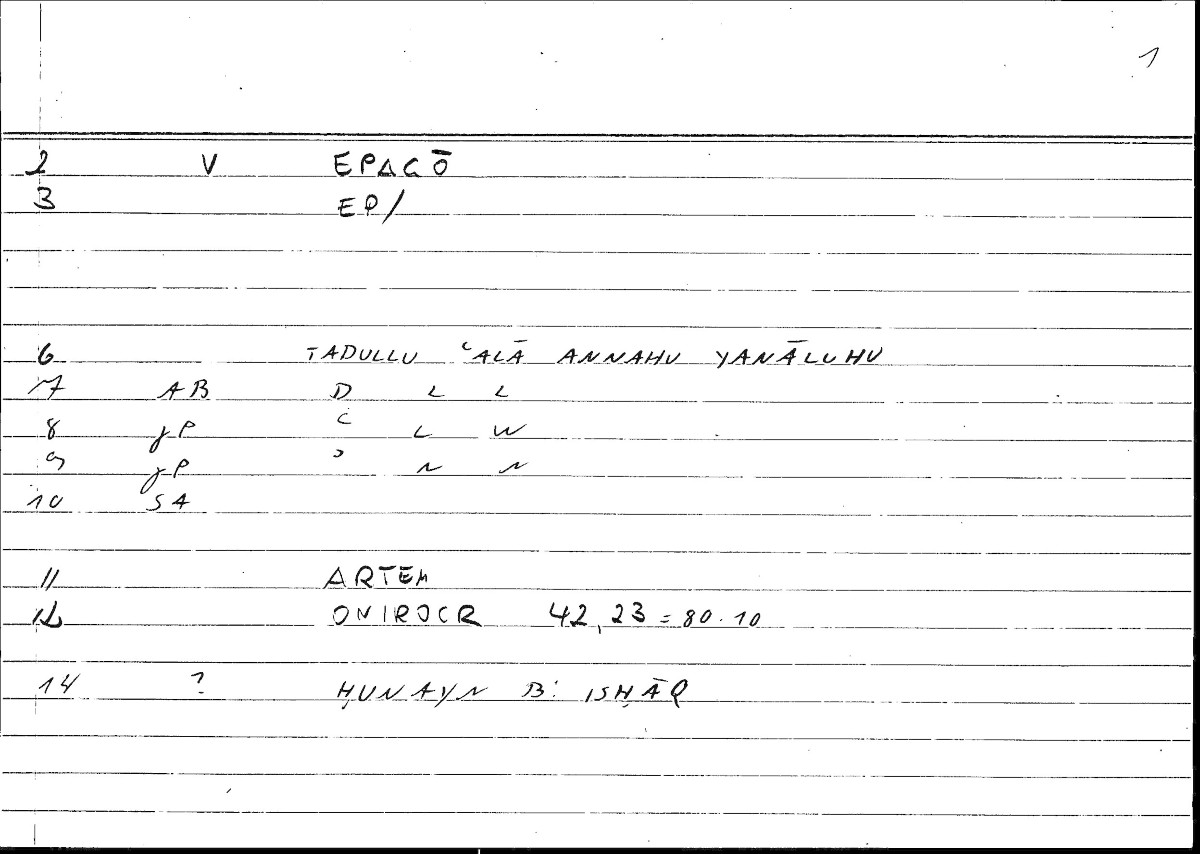 1
2 V EPAGŌ
3 EP/
6 TADULLU ʿALĀ ANNAHU YANĀLUHU
7 AB D L L
8 jP ʿ L W
9 jP ʾ N N
10 SA
11 ARTEM
12 ONIROCR 42,23 = 80.10
14 ? ḤUNAYN B. ISḤĀQ